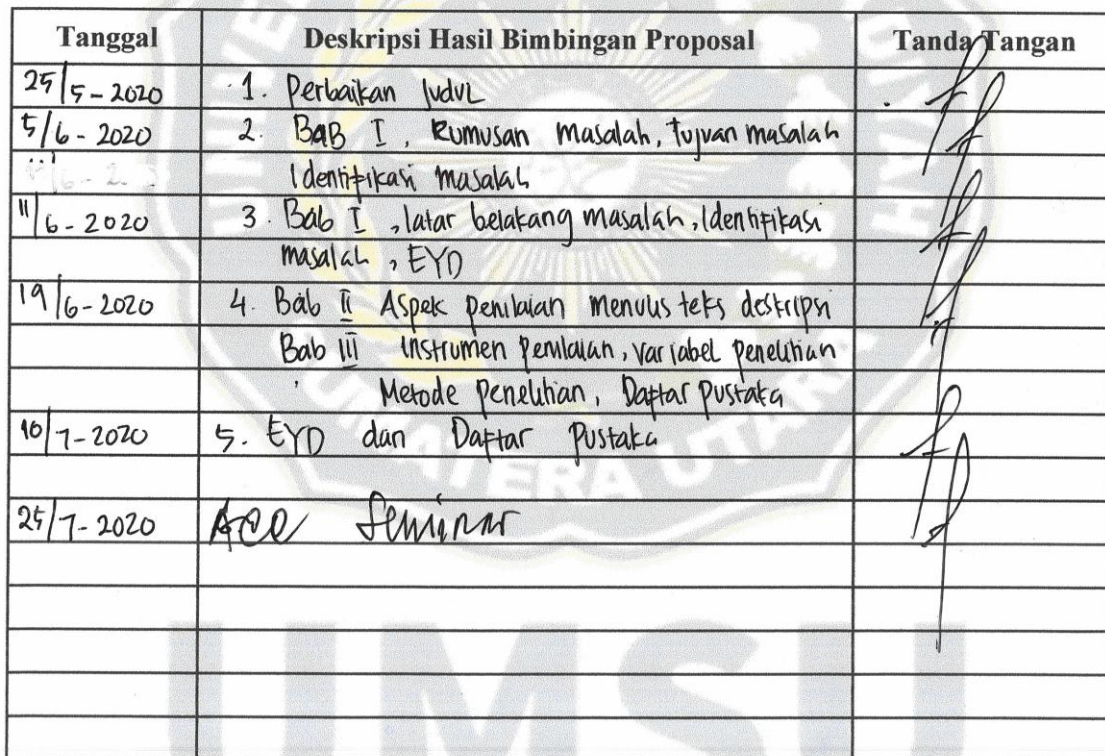 Tanggal Deskripsi Hasil Bimbingan Proposal Tanda Tangan
25/5-2020 1. Perbaikan Judul
5/6-2020 2. BAB I, Rumusan masalah, tujuan masalah
Identifikasi masalah
11/6-2020 3. Bab I, latar belakang masalah, Identifikasi
masalah, EYD
19/6-2020 4. Bab II Aspek penilaian menulis teks deskripsi
Bab III Instrumen penilaian, variabel penelitian
Metode penelitian, Daftar Pustaka
10/7-2020 5. EYD dan Daftar Pustaka
25/7-2020 Acc Seminar
SUMATERA UTARA
UMSU